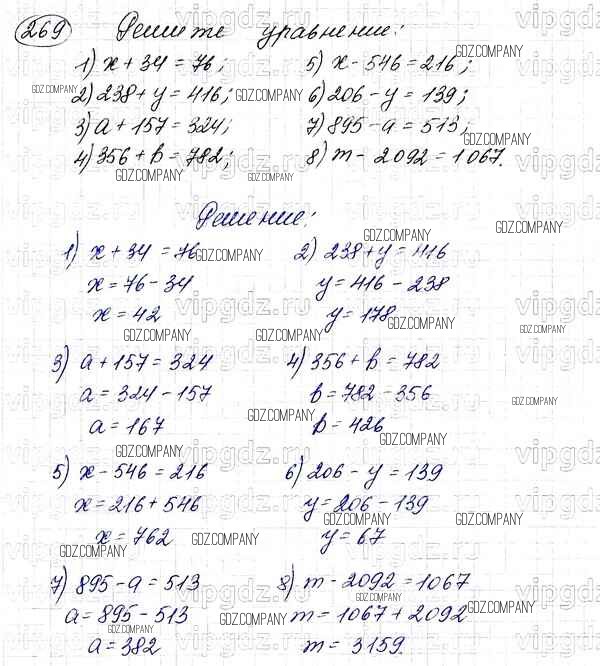 269 Решите уравнение:
1) x + 34 = 76; 5) x - 546 = 216;
2) 238 + y = 416; 6) 206 - y = 139;
3) a + 157 = 324; 7) 895 - a = 513;
4) 356 + b = 782; 8) m - 2092 = 1067.
Решение:
1) x + 34 = 76 2) 238 + y = 416
x = 76 - 34 y = 416 - 238
x = 42 y = 178
3) a + 157 = 324 4) 356 + b = 782
a = 324 - 157 b = 782 - 356
a = 167 b = 426
5) x - 546 = 216 6) 206 - y = 139
x = 216 + 546 y = 206 - 139
x = 762 y = 67
7) 895 - a = 513 8) m - 2092 = 1067
a = 895 - 513 m = 1067 + 2092
a = 382 m = 3159
GDZ.COMPANY
vipgdz.ru